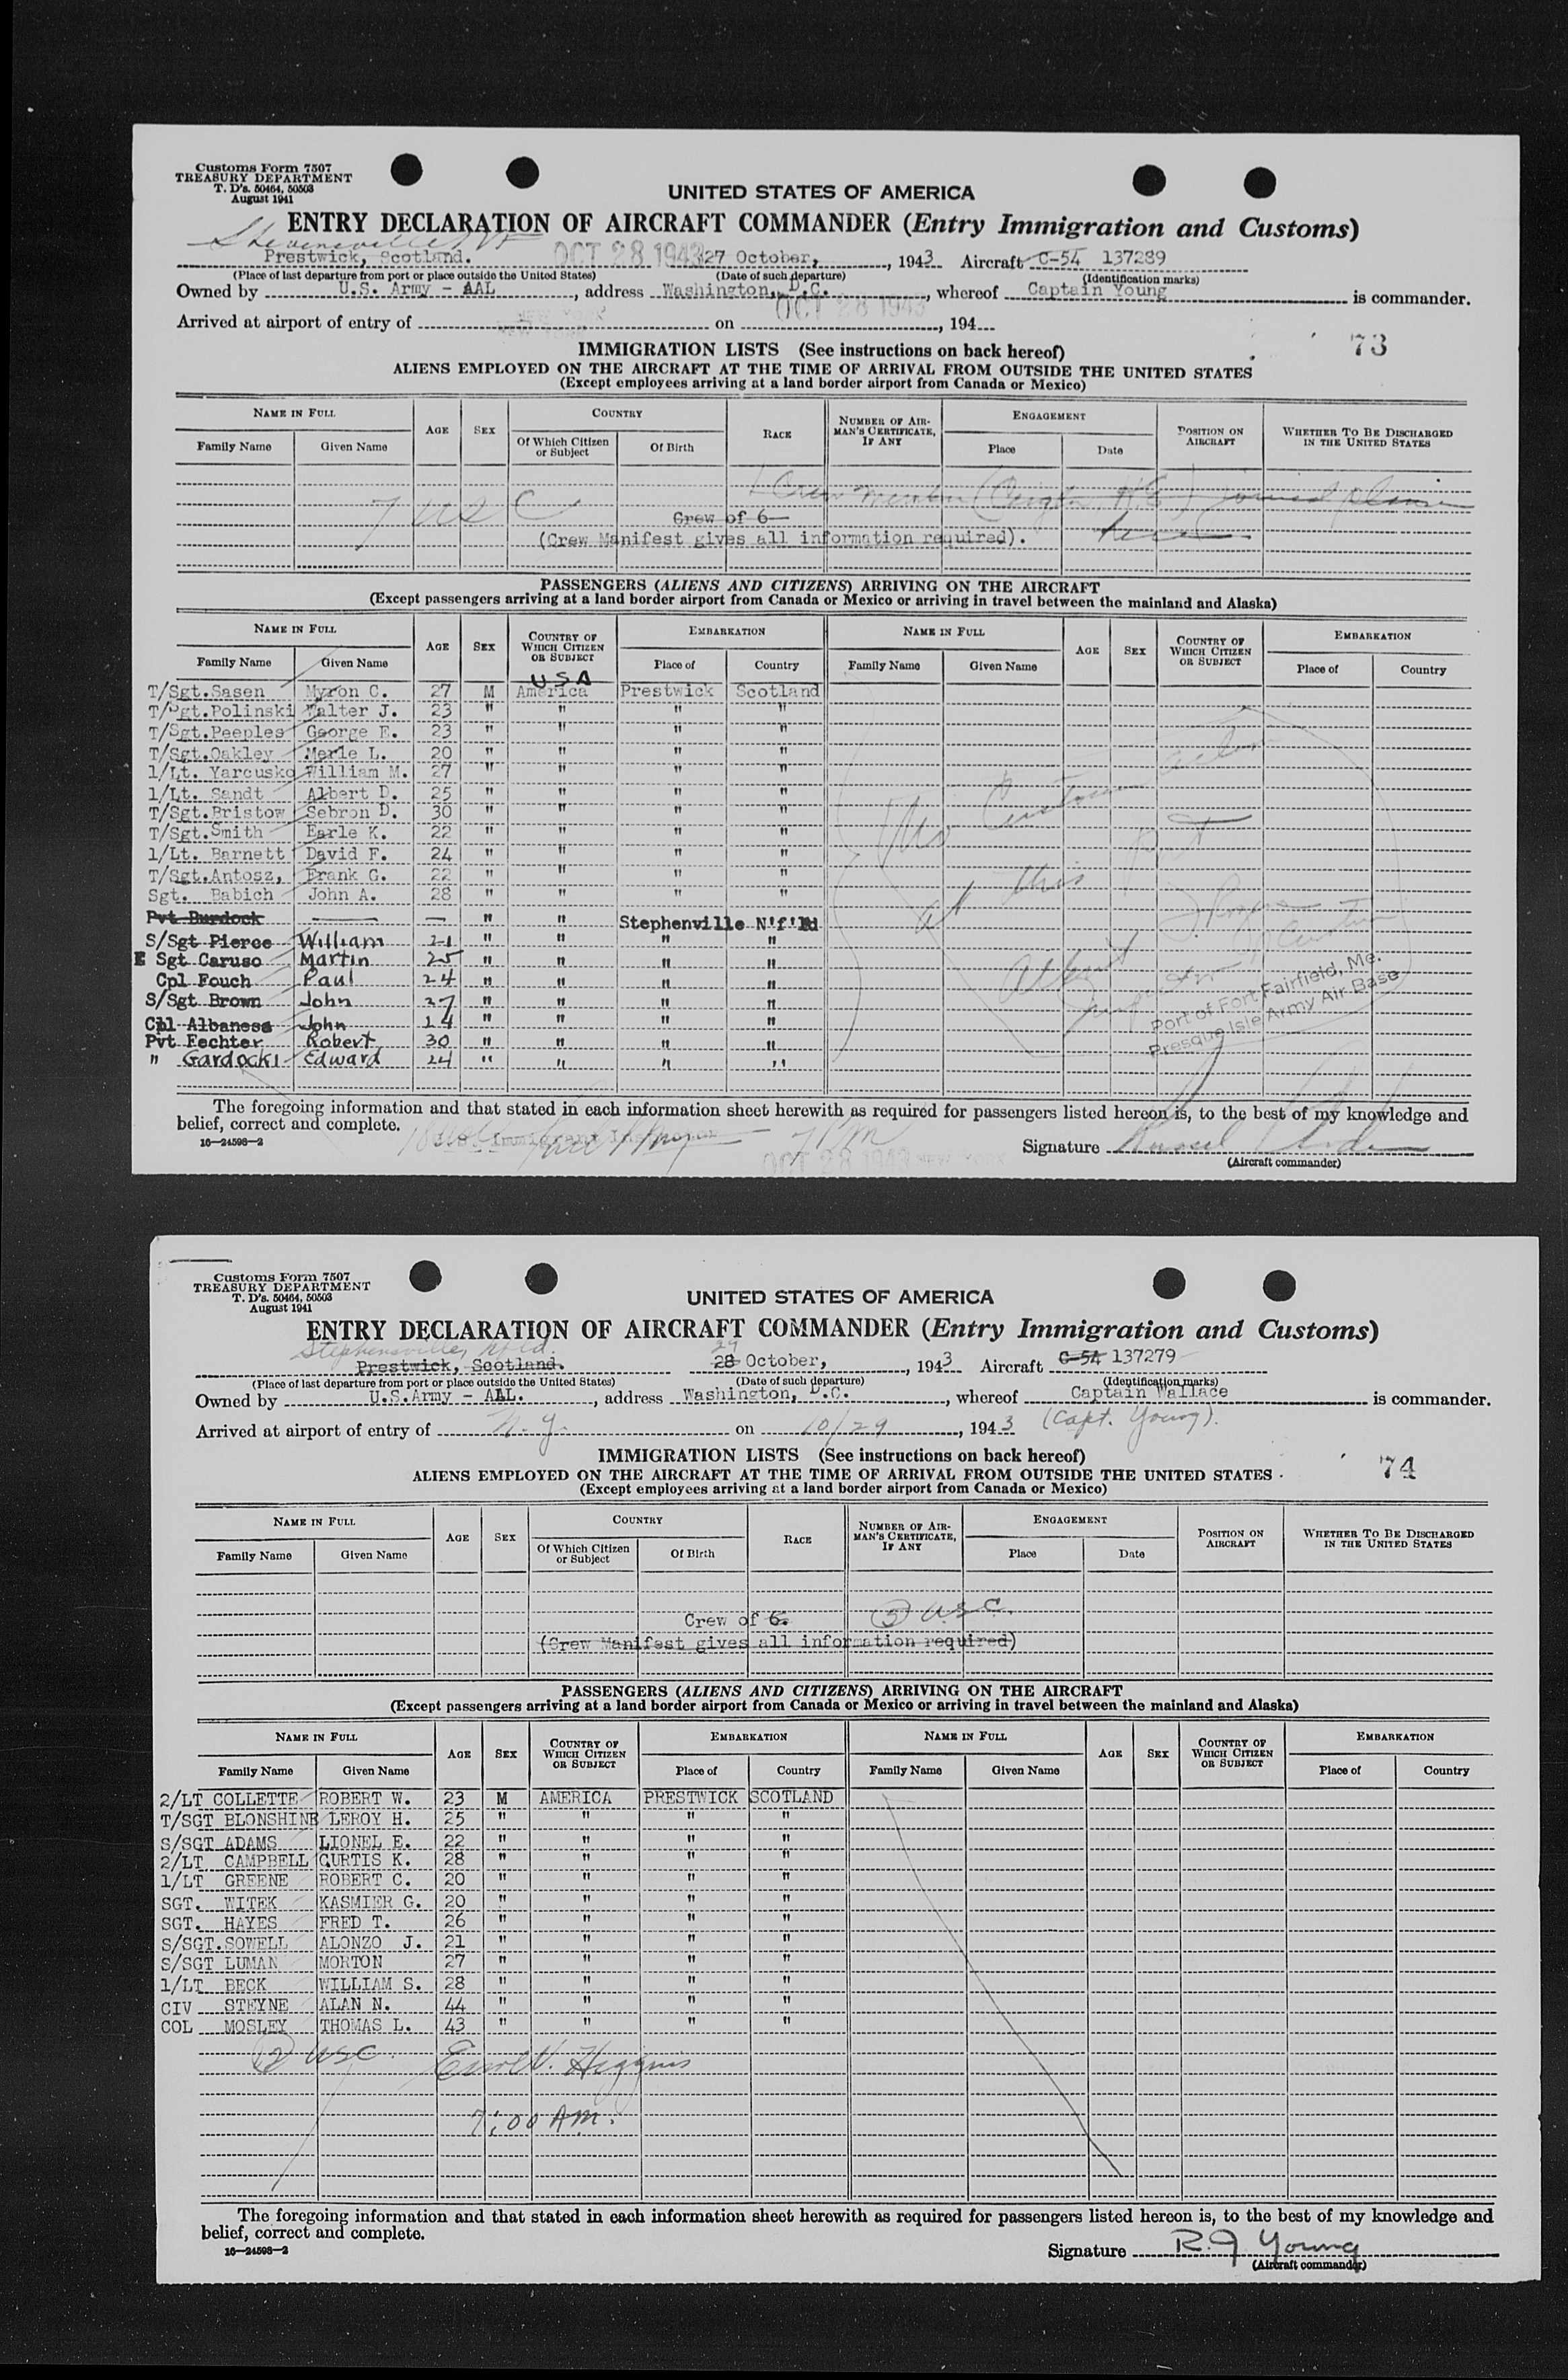 Customs Form 7507
TREASURY DEPARTMENT
T. D's. 50464, 50503
August 1941
UNITED STATES OF AMERICA
ENTRY DECLARATION OF AIRCRAFT COMMANDER (Entry Immigration and Customs)
Prestwick, Scotland. OCT 28 1943 27 October, , 1943 Aircraft C-54 137289
(Place of last departure from port or place outside the United States) (Date of such departure) (Identification marks)
Owned by U.S. Army - AAL , address Washington, D.C. , whereof Captain Young is commander.
OCT 28 1943
Arrived at airport of entry of NEW YORK on , 194
IMMIGRATION LISTS (See instructions on back hereof) 73
ALIENS EMPLOYED ON THE AIRCRAFT AT THE TIME OF ARRIVAL FROM OUTSIDE THE UNITED STATES
(Except employees arriving at a land border airport from Canada or Mexico)
NAME IN FULL AGE SEX COUNTRY RACE NUMBER OF AIRMAN'S CERTIFICATE, IF ANY ENGAGEMENT POSITION ON AIRCRAFT WHETHER TO BE DISCHARGED IN THE UNITED STATES
Family Name Given Name Of Which Citizen or Subject Of Birth Place Date
7 USC
1 Crew member joined plane here
Crew of 6
(Crew Manifest gives all information required).
PASSENGERS (ALIENS AND CITIZENS) ARRIVING ON THE AIRCRAFT
(Except passengers arriving at a land border airport from Canada or Mexico or arriving in travel between the mainland and Alaska)
NAME IN FULL AGE SEX COUNTRY OF WHICH CITIZEN OR SUBJECT EMBARKATION NAME IN FULL AGE SEX COUNTRY OF WHICH CITIZEN OR SUBJECT EMBARKATION
Family Name Given Name Place of Country Family Name Given Name Place of Country
USA
T/Sgt. Sasen Myron C. 27 M America Prestwick Scotland
T/Sgt. Polinski Walter J. 23 " " " "
T/Sgt. Peeples George E. 23 " " " "
T/Sgt. Oakley Merle L. 20 " " " "
1/Lt. Yarcusko William M. 27 " " " "
1/Lt. Sandt Albert D. 25 " " " "
T/Sgt. Bristow Sebron D. 30 " " " "
T/Sgt. Smith Earle K. 22 " " " "
1/Lt. Barnett David F. 24 " " " "
T/Sgt. Antosz, Frank G. 22 " " " "
Sgt. Babich John A. 28 " " " "
Pvt Burdock — — " " Stephenville N'f'ld
S/Sgt Pierce William 21 " " " "
Sgt Caruso Martin 25 " " " "
Cpl Fouch Paul 24 " " " "
S/Sgt Brown John 27 " " " "
Cpl Albanese John 24 " " " "
Pvt Fechter Robert 30 " " " "
" Gardocki Edward 24 " " " "
No Customs
at this Port
Port of Fort Fairfield, Me.
Presque Isle Army Air Base
The foregoing information and that stated in each information sheet herewith as required for passengers listed hereon is, to the best of my knowledge and
belief, correct and complete.
16—24598—2 U.S. Immigrant Inspector 7 PM
OCT 28 1943 NEW YORK
Signature
(Aircraft commander)
Customs Form 7507
TREASURY DEPARTMENT
T. D's. 50464, 50503
August 1941
UNITED STATES OF AMERICA
ENTRY DECLARATION OF AIRCRAFT COMMANDER (Entry Immigration and Customs)
Stephensville, Nfld. 29
Prestwick, Scotland. 28 October, , 1943 Aircraft C-54 137279
(Place of last departure from port or place outside the United States) (Date of such departure) (Identification marks)
Owned by U.S.Army - AAL. , address Washington, D.C. , whereof Captain Wallace is commander.
Arrived at airport of entry of N.Y. on 10/29 , 1943 (Capt. Young).
IMMIGRATION LISTS (See instructions on back hereof) 74
ALIENS EMPLOYED ON THE AIRCRAFT AT THE TIME OF ARRIVAL FROM OUTSIDE THE UNITED STATES
(Except employees arriving at a land border airport from Canada or Mexico)
NAME IN FULL AGE SEX COUNTRY RACE NUMBER OF AIRMAN'S CERTIFICATE, IF ANY ENGAGEMENT POSITION ON AIRCRAFT WHETHER TO BE DISCHARGED IN THE UNITED STATES
Family Name Given Name Of Which Citizen or Subject Of Birth Place Date
Crew of 6. 5 USC.
(Crew Manifest gives all information required)
PASSENGERS (ALIENS AND CITIZENS) ARRIVING ON THE AIRCRAFT
(Except passengers arriving at a land border airport from Canada or Mexico or arriving in travel between the mainland and Alaska)
NAME IN FULL AGE SEX COUNTRY OF WHICH CITIZEN OR SUBJECT EMBARKATION NAME IN FULL AGE SEX COUNTRY OF WHICH CITIZEN OR SUBJECT EMBARKATION
Family Name Given Name Place of Country Family Name Given Name Place of Country
2/LT COLLETTE ROBERT W. 23 M AMERICA PRESTWICK SCOTLAND
T/SGT BLONSHINE LEROY H. 25 " " " "
S/SGT ADAMS LIONEL E. 22 " " " "
2/LT CAMPBELL CURTIS K. 28 " " " "
1/LT GREENE ROBERT C. 20 " " " "
SGT. WITEK KASMIER G. 20 " " " "
SGT. HAYES FRED T. 26 " " " "
S/SGT. SOWELL ALONZO J. 21 " " " "
S/SGT LUMAN MORTON 27 " " " "
1/LT BECK WILLIAM S. 28 " " " "
CIV STEYNE ALAN N. 44 " " " "
COL MOSLEY THOMAS L. 43 " " " "
12 USC. Errol V. Higgins
7:00 AM.
The foregoing information and that stated in each information sheet herewith as required for passengers listed hereon is, to the best of my knowledge and
belief, correct and complete.
16—24598—2
Signature R.J. Young
(Aircraft commander)